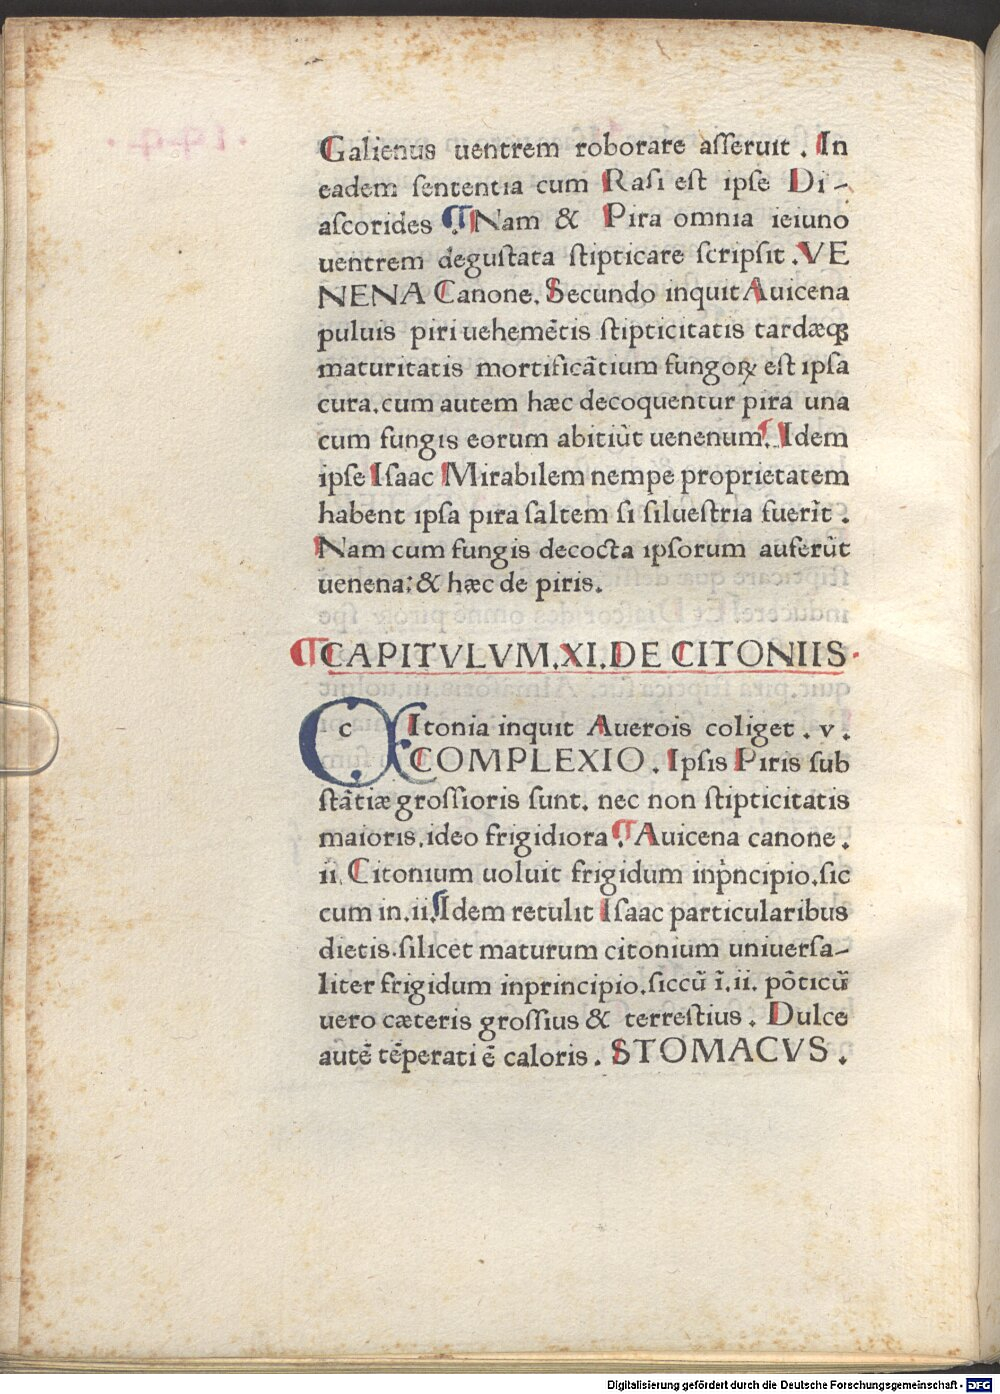 Galienus uentrem roborare asſeruit . In
eadem ſententia cum Raſi eſt ipſe Di-
aſcorides ¶ Nam & Pira omnia ieiuno
uentrem deguſtata ſtipticare ſcripſit . VE
NENA Canone. Secundo inquit Auicena
puluis piri uehemẽtis ſtipticitatis tardæqꝫ
maturitatis mortificãtium fungoꝝ eſt ipſa
cura. cum autem hæc decoquentur pira una
cum fungis eorum abitiũt uenenum. ¶ Idem
ipſe Iſaac Mirabilem nempe proprietatem
habent ipſa pira ſaltem ſi ſilueſtria fuerĩt .
Nam cum fungis decocta ipſorum auferũt
uenena: & hæc de piris.
¶ CAPITVLVM.XI.DE CITONIIS.
c Itonia inquit Auerois coliget . v .
COMPLEXIO . Ipſis Piris ſub
ſtãtiæ groſſioris ſunt. nec non ſtipticitatis
maioris. ideo frigidiora . ¶ Auicena canone .
ii. Citonium uoluit frigidum inpͥncipio. ſic
cum in. ii. ¶ Idem retulit Iſaac particularibus
dietis. ſilicet maturum citonium uniuerſa-
liter frigidum inprincipio. ſiccũ ĩ. ii. põticũ
uero cæteris groſſius & terreſtius . Dulce
autẽ tẽperati ẽ caloris . STOMACVS .
Digitalisierung gefördert durch die Deutsche Forschungsgemeinschaft - DFG